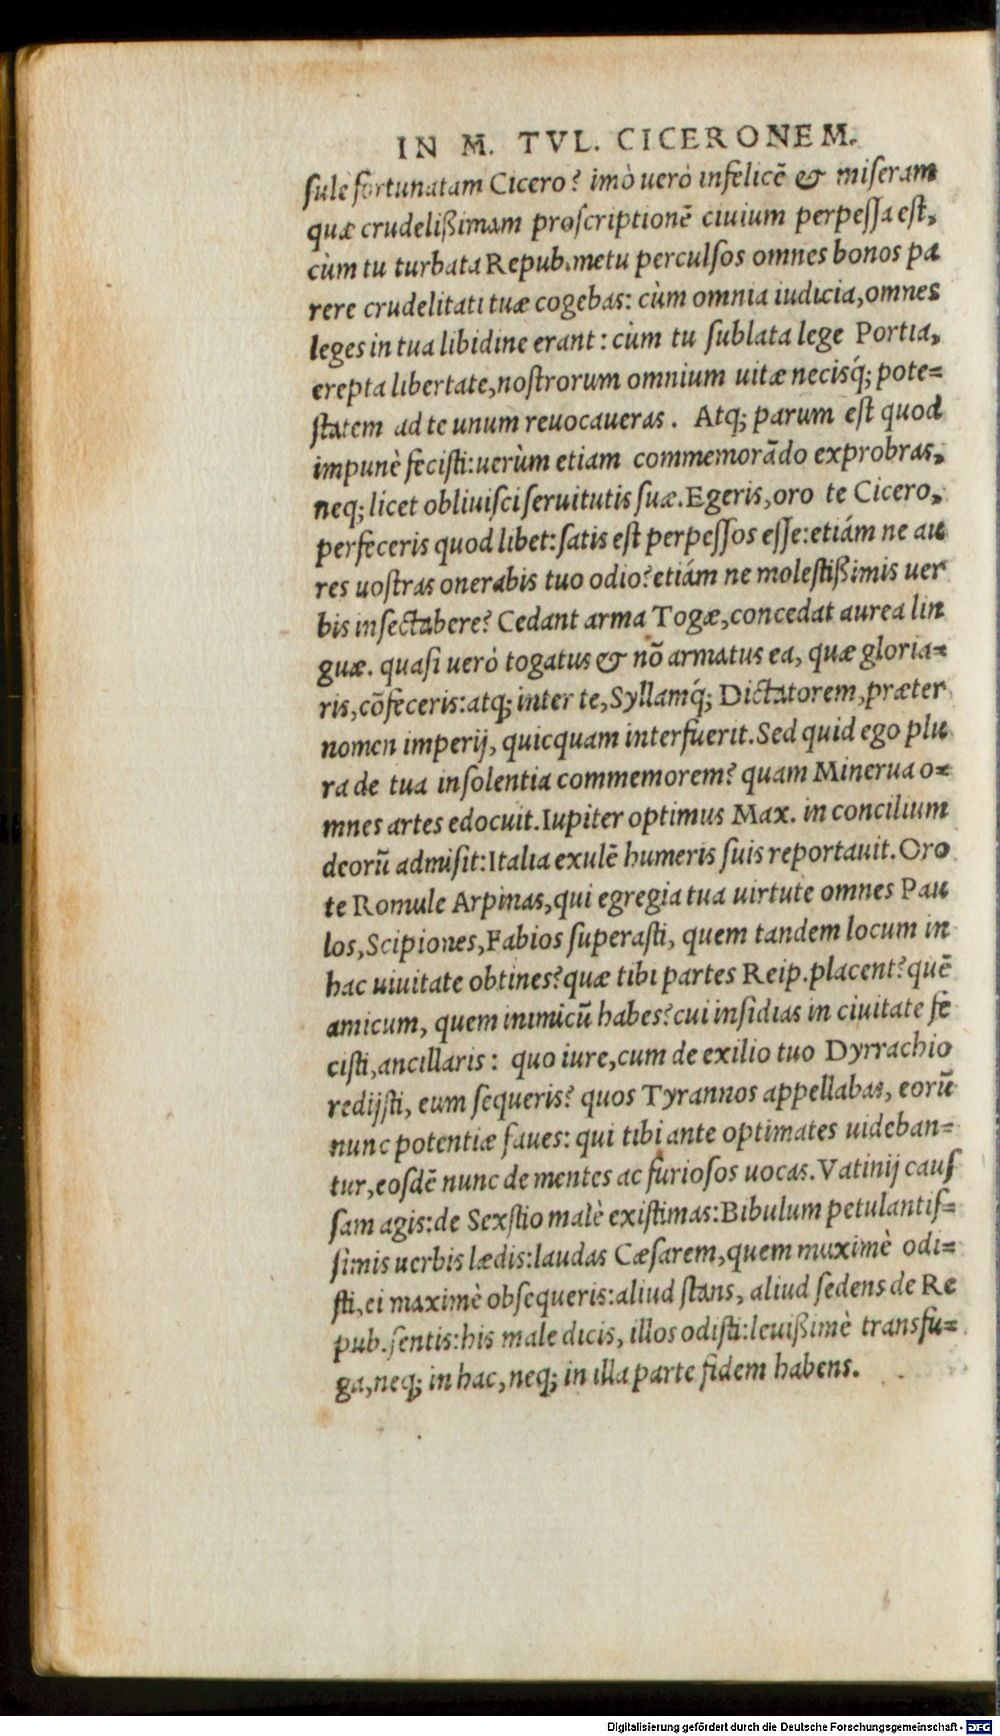 IN M. TVL. CICERONEM.
ſule fortunatam Cicero? imò uerò infelicē & miſeram
quæ crudelißimam proſcriptionē ciuium perpeſſa eſt,
cùm tu turbata Repub. metu perculſos omnes bonos pa
rere crudelitati tuæ cogebas: cùm omnia iudicia, omnes
leges in tua libidine erant: cùm tu ſublata lege Portia,
erepta libertate, noſtrorum omnium uitæ necisq́; pote=
ſtatem ad te unum reuocaueras. Atq; parum eſt quod
impunè feciſti: uerùm etiam commemorādo exprobras,
neq; licet obliuiſci ſeruitutis ſuæ. Egeris, oro te Cicero,
perfeceris quod libet: ſatis eſt perpeſſos eſſe: etiám ne au
res uoſtras onerabis tuo odio? etiám ne moleſtißimis uer
bis inſectabere? Cedant arma Togæ, concedat aurea lin
guæ. quaſi uerò togatus & nō armatus ea, quæ gloria=
ris, cōfeceris: atq; inter te, Syllamq́; Dictatorem, præter
nomen imperij, quicquam interfuerit. Sed quid ego plu
ra de tua inſolentia commemorem? quam Minerua o=
mnes artes edocuit. Iupiter optimus Max. in concilium
deorū admiſit: Italia exulē humeris ſuis reportauit. Oro
te Romule Arpinas, qui egregia tua uirtute omnes Pau
los, Scipiones, Fabios ſuperaſti, quem tandem locum in
hac uiuitate obtines? quæ tibi partes Reip. placent? quē
amicum, quem inimicū habes? cui inſidias in ciuitate fe
ciſti, ancillaris: quo iure, cum de exilio tuo Dyrrachio
redijſti, eum ſequeris? quos Tyrannos appellabas, eorū
nunc potentiæ faues: qui tibi ante optimates uideban=
tur, eoſdē nunc de mentes ac furioſos uocas. Vatinij cauſ
ſam agis: de Sexſtio malè exiſtimas: Bibulum petulantiſ=
ſimis uerbis lædis: laudas Cæſarem, quem maximè odi=
ſti, ei maximè obſequeris: aliud ſtans, aliud ſedens de Re
pub. ſentis: his male dicis, illos odiſti: leuißimè transfu=
ga, neq; in hac, neq; in illa parte fidem habens.
Digitalisierung gefördert durch die Deutsche Forschungsgemeinschaft - DFG